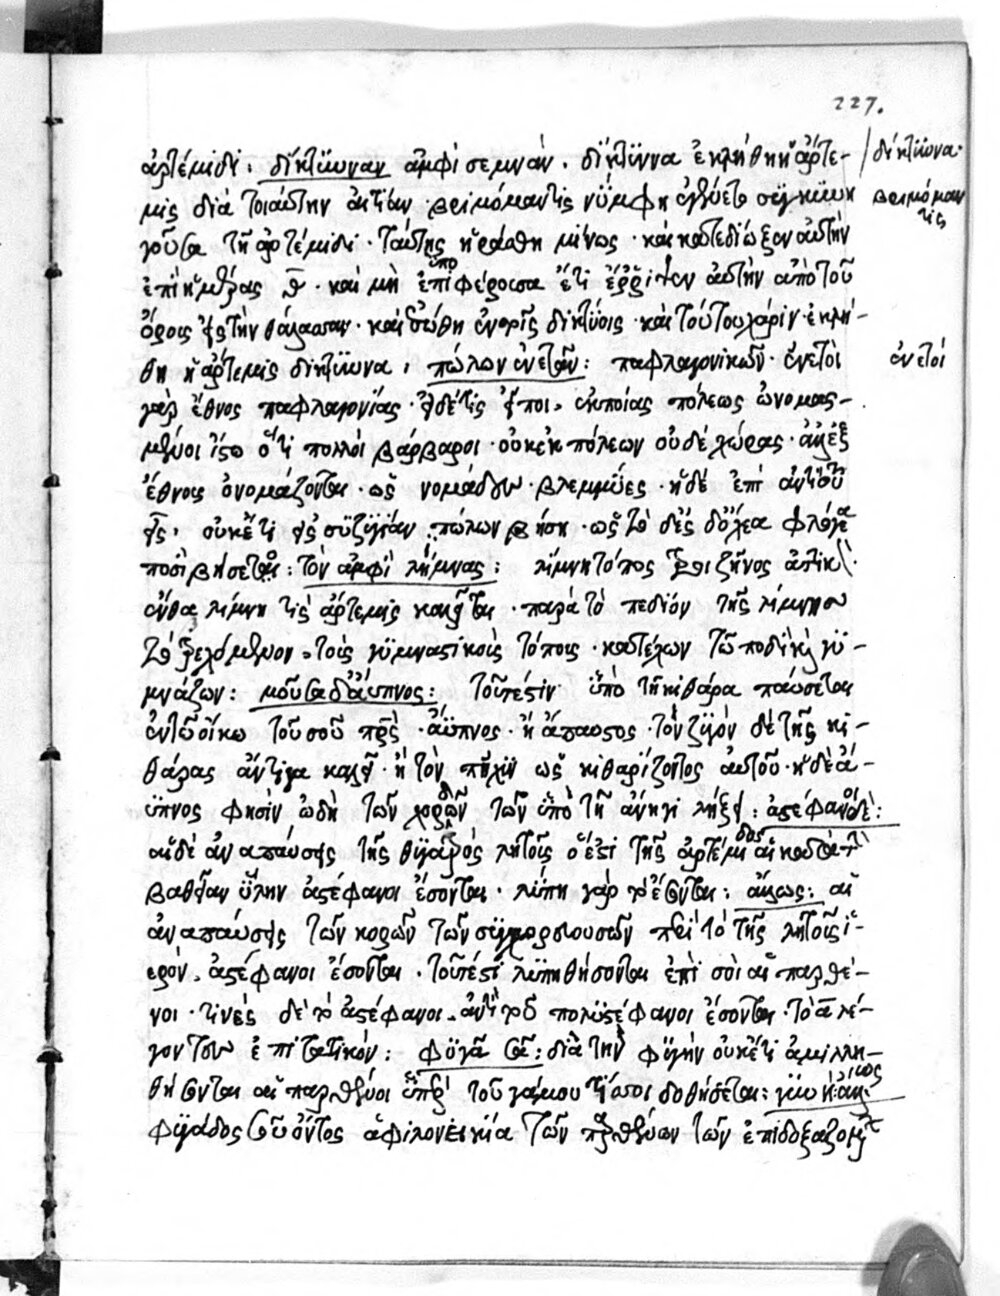 227.
ἀρτέμιδι. δίκτυναν ἀμφὶ σεμνάν. δίκτυννα ἐκλήθη ἡ ἄρτε- δίκτυνα.
μις διὰ τοιαύτην αἰτίαν. βριτόμαντις νύμφη ἐγένετο συγκυνη βριτόμαντις
γοῦσα τῇ ἀρτέμιδι. ταύτης ἠράσθη μίνως. καὶ κατεδίωξεν αὐτὴν
ἐπὶ ἡμέρας θ. καὶ μὴ ὑποφέρουσα ἔτι ἔρριψεν αὐτὴν ἀπὸ τοῦ
ὄρους εἰς τὴν θάλασσαν. καὶ ἐσώθη ἐν τοῖς δικτύοις. καὶ τούτου χάριν ἐκλή-
θη ἡ ἄρτεμις δίκτυννα, πώλων ἐνετᾶν: παφλαγονικῶν. ἐνετοὶ ἐνετοί
γὰρ ἔθνος παφλαγονίας. εἰ δέ τις εἴποι, ἐκ ποίας πόλεως ὠνομασ-
μένοι ἴστω ὅτι πολλοὶ βάρβαροι. οὐκ ἐκ πόλεων οὐδὲ χώρας. ἀλλ' ἐξ
ἔθνους ὀνομάζονται. ὡς νομάδες. βλεμμύες. ἡ δὲ ἐπὶ ἀντὶ τοῦ
εἰς. οὐκέτι εἰς συζυγίαν πώλων βήσῃ. ὡς τὸ
ποσὶ βήσεται: τὸν ἀμφὶ λίμνας: λίμνη τόπος τροιζῆνος
ἔνθα λίμνη τις ἄρτεμις καλεῖται. παρὰ τὸ πεδίον τῆς λίμνης
τὸ τρεχόμενον. τοῖς γυμναστικοῖς τόποις. κατέχων τῷ ποδὶ καὶ γυ-
μνάζων: μοῦσα δ' ἄυπνος: τουτέστιν ὑπὸ τῇ κιθάρα παύσεται
ἐν τῷ οἴκῳ τοῦ σοῦ πατρὸς. ἄυπνος. ἡ ἄπαυστος. τὸν ζυγὸν δὲ τῆς κι-
θάρας ἄντυγα καλεῖ. ἢ τὸν πῆχυν ὡς κιθαρίζοντος αὐτοῦ. ἡ δὲ ἀ-
ύπνος φησὶν ὠδὴ τῶν χορδῶν τῶν ὑπὸ τῇ ἄντυγι λήξει: ἀστέφανοι δὲ:
αἱ δὲ ἀναπαύσεις τῆς θυγατρὸς λητοῦς ὅ ἐστι τῆς ἀρτέμιδος αἱ κατὰ τὴν
βαθεῖαν ὕλην ἀστέφανοι ἔσονται. λύπη γὰρ ἔσονται: ἄλλως: αἱ
ἀναπαύσεις τῶν κορῶν τῶν συγχορευουσῶν περὶ τὸ τῆς λητοῦς ἱ-
ερόν. ἀστέφανοι ἔσονται. τουτέστι λυπηθήσονται ἐπὶ σοὶ αἱ παρθέ-
νοι. τινὲς δὲ τὸ ἀστέφανοι. ἀντὶ τοῦ πολυστέφανοι ἔσονται. τὸ α λέ-
γοντες ἐπιτατικόν: φυγᾷ σᾷ: διὰ τὴν φυγὴν οὐκέτι ἁμιλλη-
θήσονται αἱ παρθένοι ὑπὲρ τοῦ γάμου τίνι δοθήσεται:
φυγάδος σοῦ ὄντος ἀφιλονεικία τῶν παρθένων τῶν